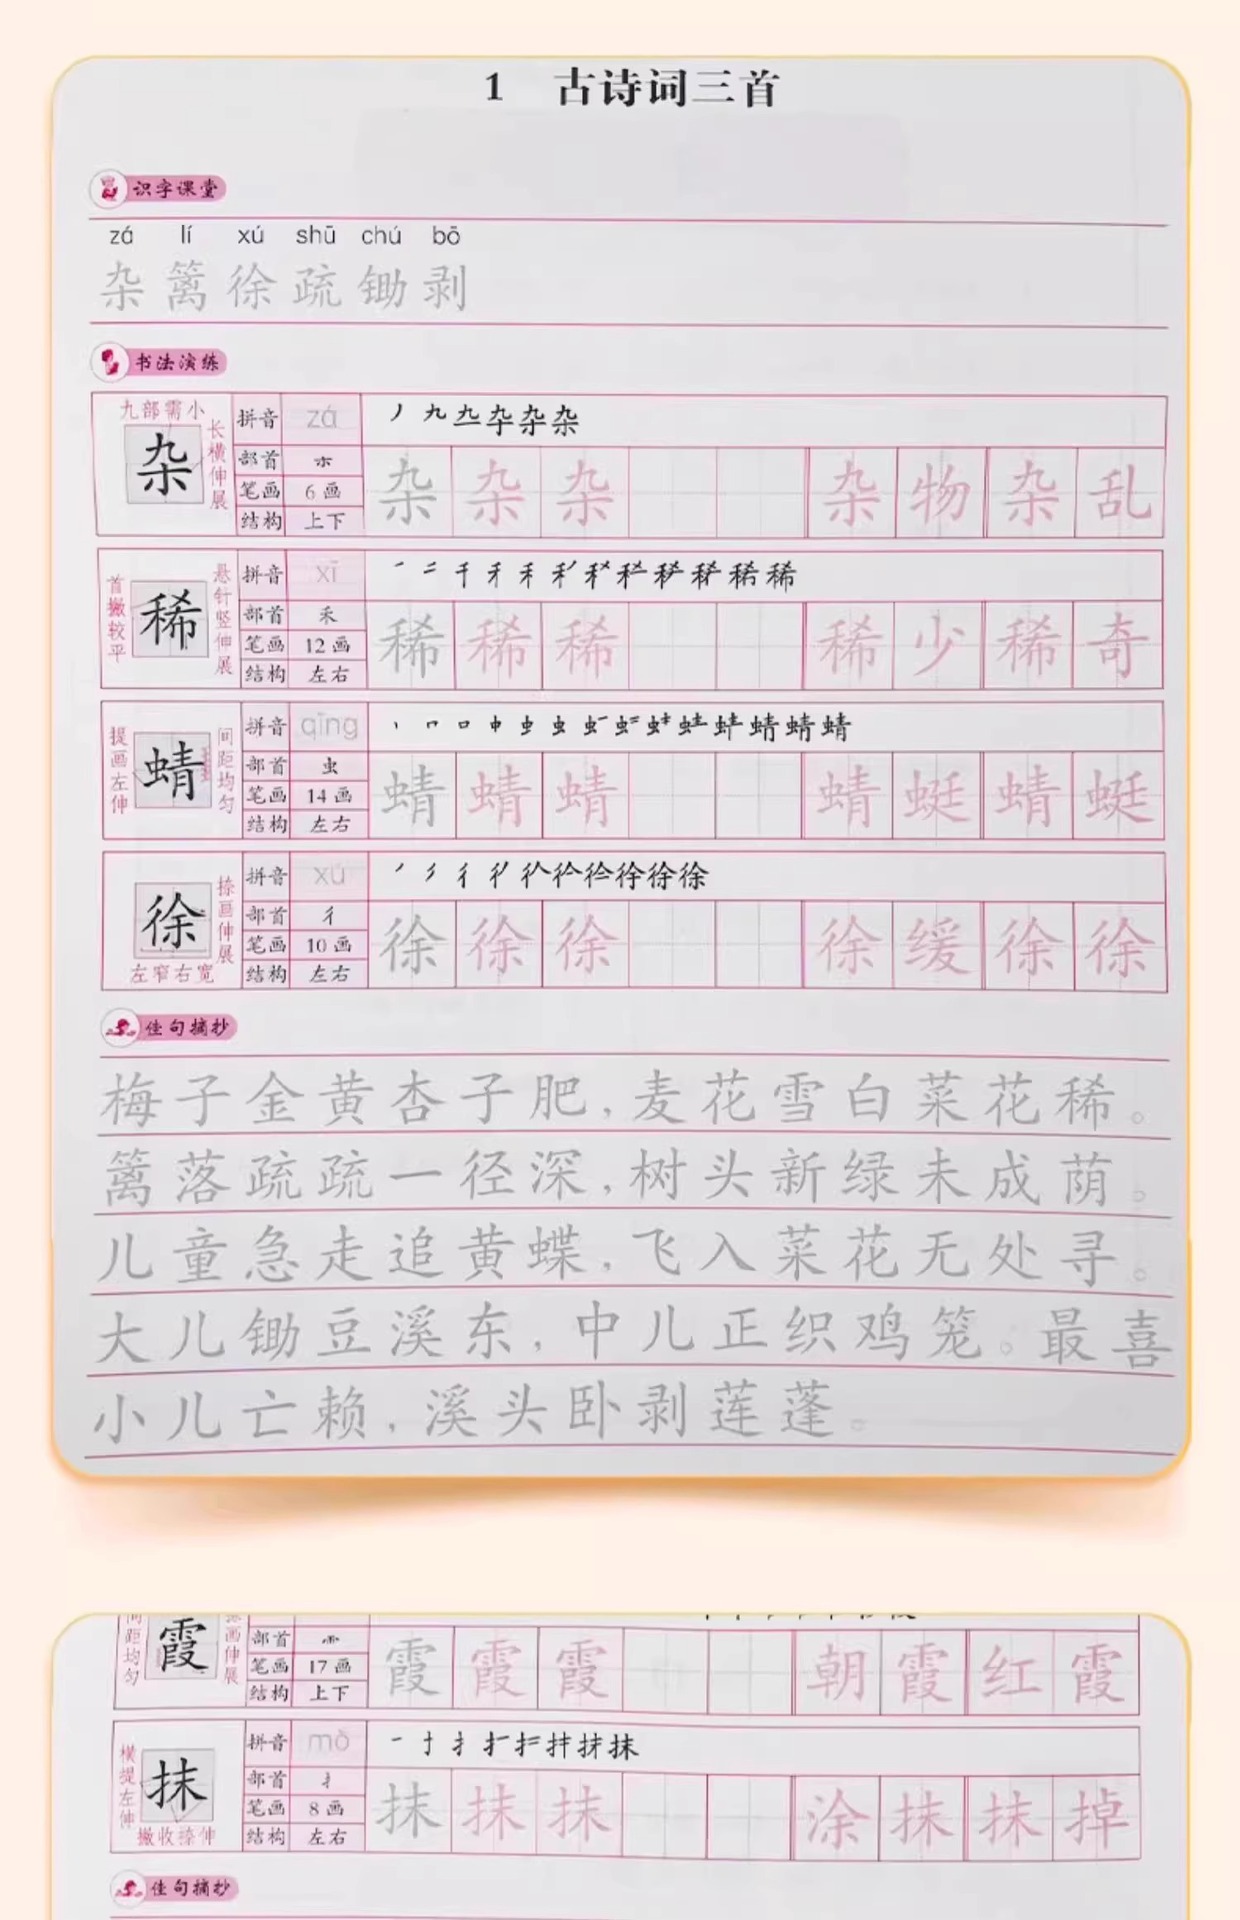 1 古诗词三首
识字课堂
zá lí xú shū chú bō
杂 篱 徐 疏 锄 剥
书法演练
九部需小
长横伸展
杂
拼音 zá
部首
笔画 6画
结构 上下
杂 杂 杂 杂 物 杂 乱
首撇较平
悬针竖伸展
稀
拼音 xī
部首 禾
笔画 12画
结构 左右
稀 稀 稀 稀 少 稀 奇
提画左伸
间距均匀
蜻
拼音 qīng
部首 虫
笔画 14画
结构 左右
蜻 蜻 蜻 蜻 蜓 蜻 蜓
捺画伸展
徐
左窄右宽
拼音 xú
部首 彳
笔画 10画
结构 左右
徐 徐 徐 徐 缓 徐 徐
佳句摘抄
梅子金黄杏子肥,麦花雪白菜花稀。
篱落疏疏一径深,树头新绿未成荫。
儿童急走追黄蝶,飞入菜花无处寻。
大儿锄豆溪东,中儿正织鸡笼。最喜
小儿亡赖,溪头卧剥莲蓬。
间距均匀
画伸展
霞
部首
笔画 17画
结构 上下
霞 霞 霞 朝 霞 红 霞
横提左伸
抹
撇收捺伸
拼音 mǒ
部首 扌
笔画 8画
结构 左右
抹 抹 抹 涂 抹 抹 掉
佳句摘抄